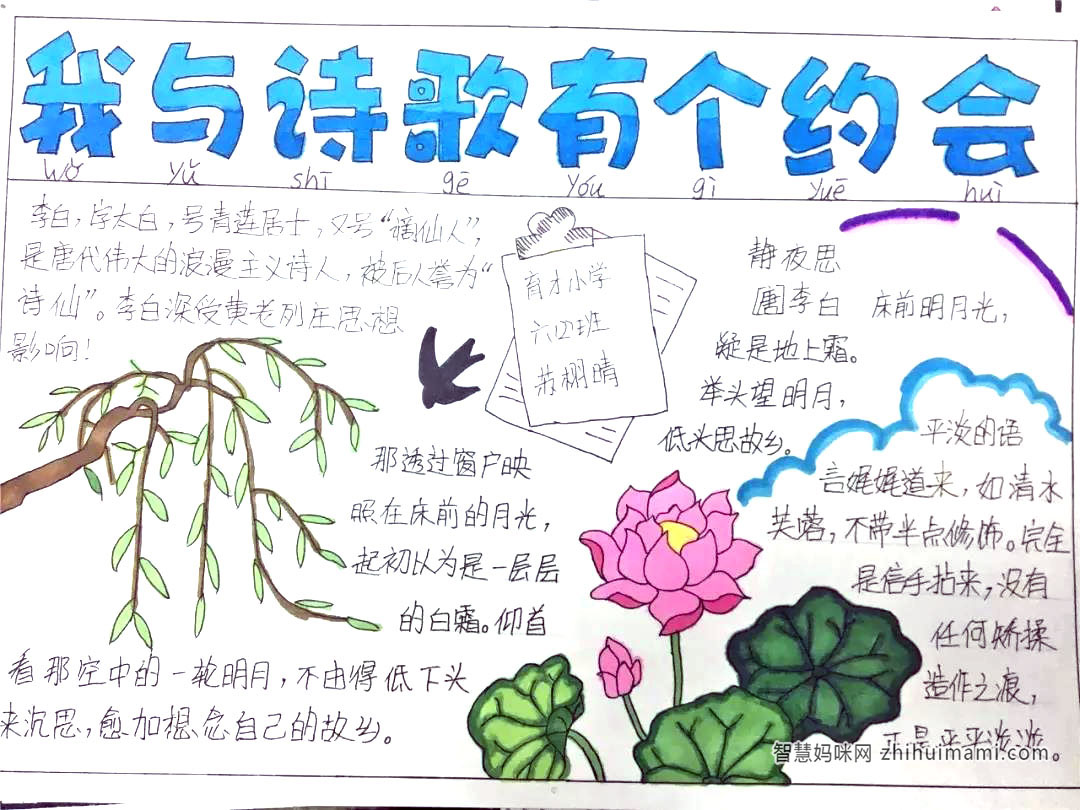 我与诗歌有个约会
wǒ yǔ shī gē yóu gì yuē huì
李白，字太白，号青莲居士，又号“谪仙人”，
是唐代伟大的浪漫主义诗人，被后人誉为“
诗仙”。李白深受黄老列庄思想
影响！
育才小学
六四班
栩晴
静夜思
唐李白 床前明月光，
疑是地上霜。
举头望明月，
低头思故乡。
那透过窗户映
照在床前的月光，
起初以为是一层层
的白霜。仰首
看那空中的一轮明月，不由得低下头
来沉思，愈加想念自己的故乡。
平淡的语
言娓娓道来，如清水
芙蓉，不带半点修饰。完全
是信手拈来，没有
任何矫揉
造作之痕，
正是平平淡淡。
智慧妈咪网 zhihuimami.com